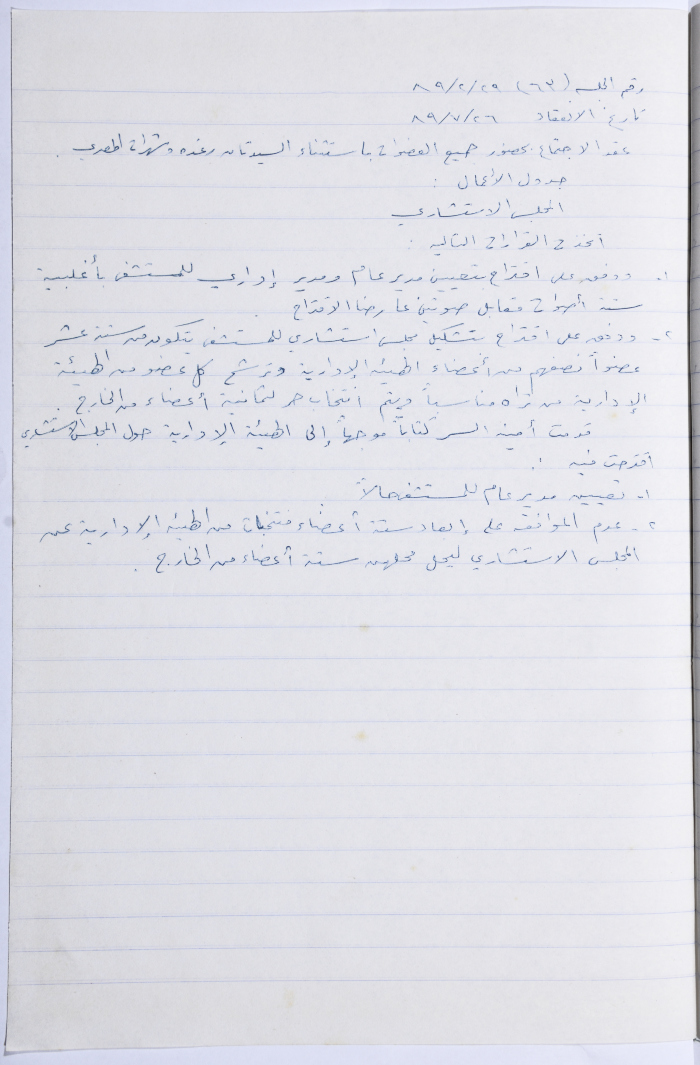 رقم الجلسة (٦٣) ٨٩/٢/٢٩
تاريخ الانعقاد ٨٩/٧/٢٦
عقد الاجتماع بحضور جميع العضوات باستثناء السيدتان رغده وشهرات المصري .
جدول الأعمال :
المجلس الاستشاري
اتخذت القرارات التالية :
١- ووفق على اقتراح بتعيين مدير عام ومدير إداري للمستشفى بأغلبية
ستة أصوات مقابل صوتين عارضا الاقتراح .
٢- ووفق على اقتراح بتشكيل مجلس استشاري للمستشفى يتكون من ستة عشر
عضواً نصفهم من أعضاء الهيئة الإدارية وترشح كل عضو من الهيئة
الإدارية من تراه مناسباً ويتم انتخاب حر لثمانية أعضاء من الخارج .
قدمت أمينة السر كتاباً موجهاً إلى الهيئة الإدارية حول المجلس الاستشاري
اقترحت فيه :
١- تعيين مدير عام للمستشفى حالاً
٢- عدم الموافقة على إبعاد ستة أعضاء منتخبات من الهيئة الإدارية عن
المجلس الاستشاري ليحل محلهن ستة أعضاء من الخارج .